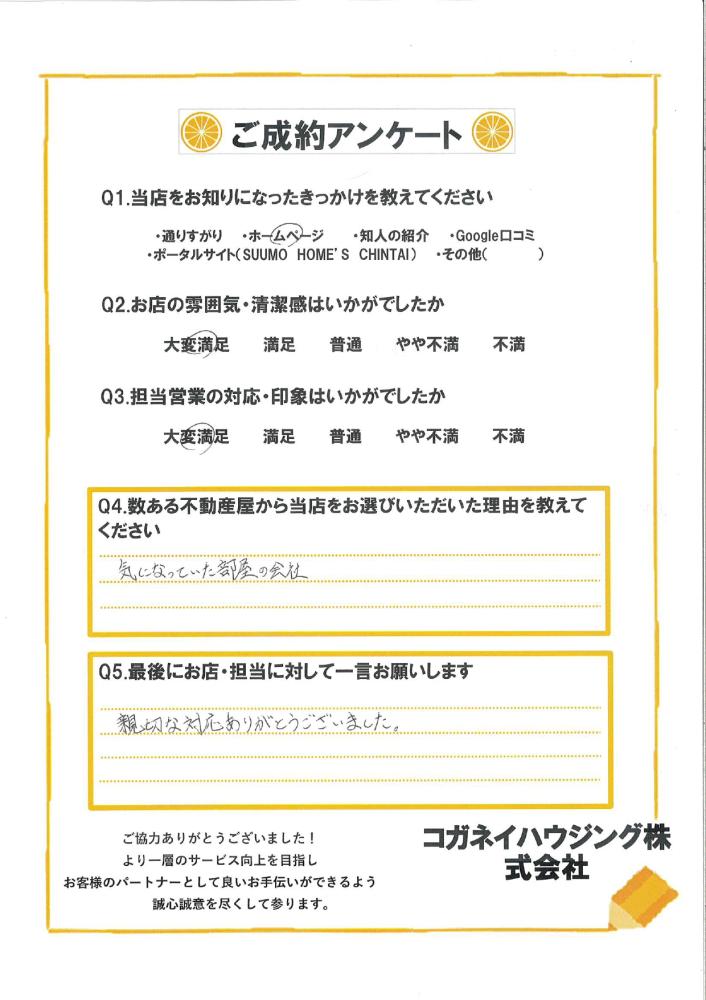 ご成約アンケート
Q1.当店をお知りになったきっかけを教えてください
・通りすがり ・ホームページ ・知人の紹介 ・Google口コミ
・ポータルサイト(SUUMO HOME'S CHINTAI) ・その他( )
Q2.お店の雰囲気・清潔感はいかがでしたか
大変満足 満足 普通 やや不満 不満
Q3.担当営業の対応・印象はいかがでしたか
大変満足 満足 普通 やや不満 不満
Q4.数ある不動産屋から当店をお選びいただいた理由を教えて
ください
気になっていた部屋の会社
Q5.最後にお店・担当に対して一言お願いします
親切な対応ありがとうございました。
ご協力ありがとうございました！
より一層のサービス向上を目指し
お客様のパートナーとして良いお手伝いができるよう
誠心誠意を尽くして参ります。
コガネイハウジング株
式会社